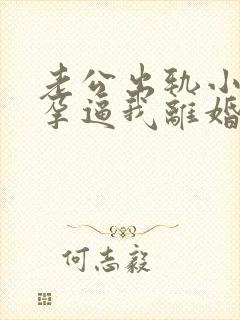 老公出轨小
孕逼我離婚
何志毅